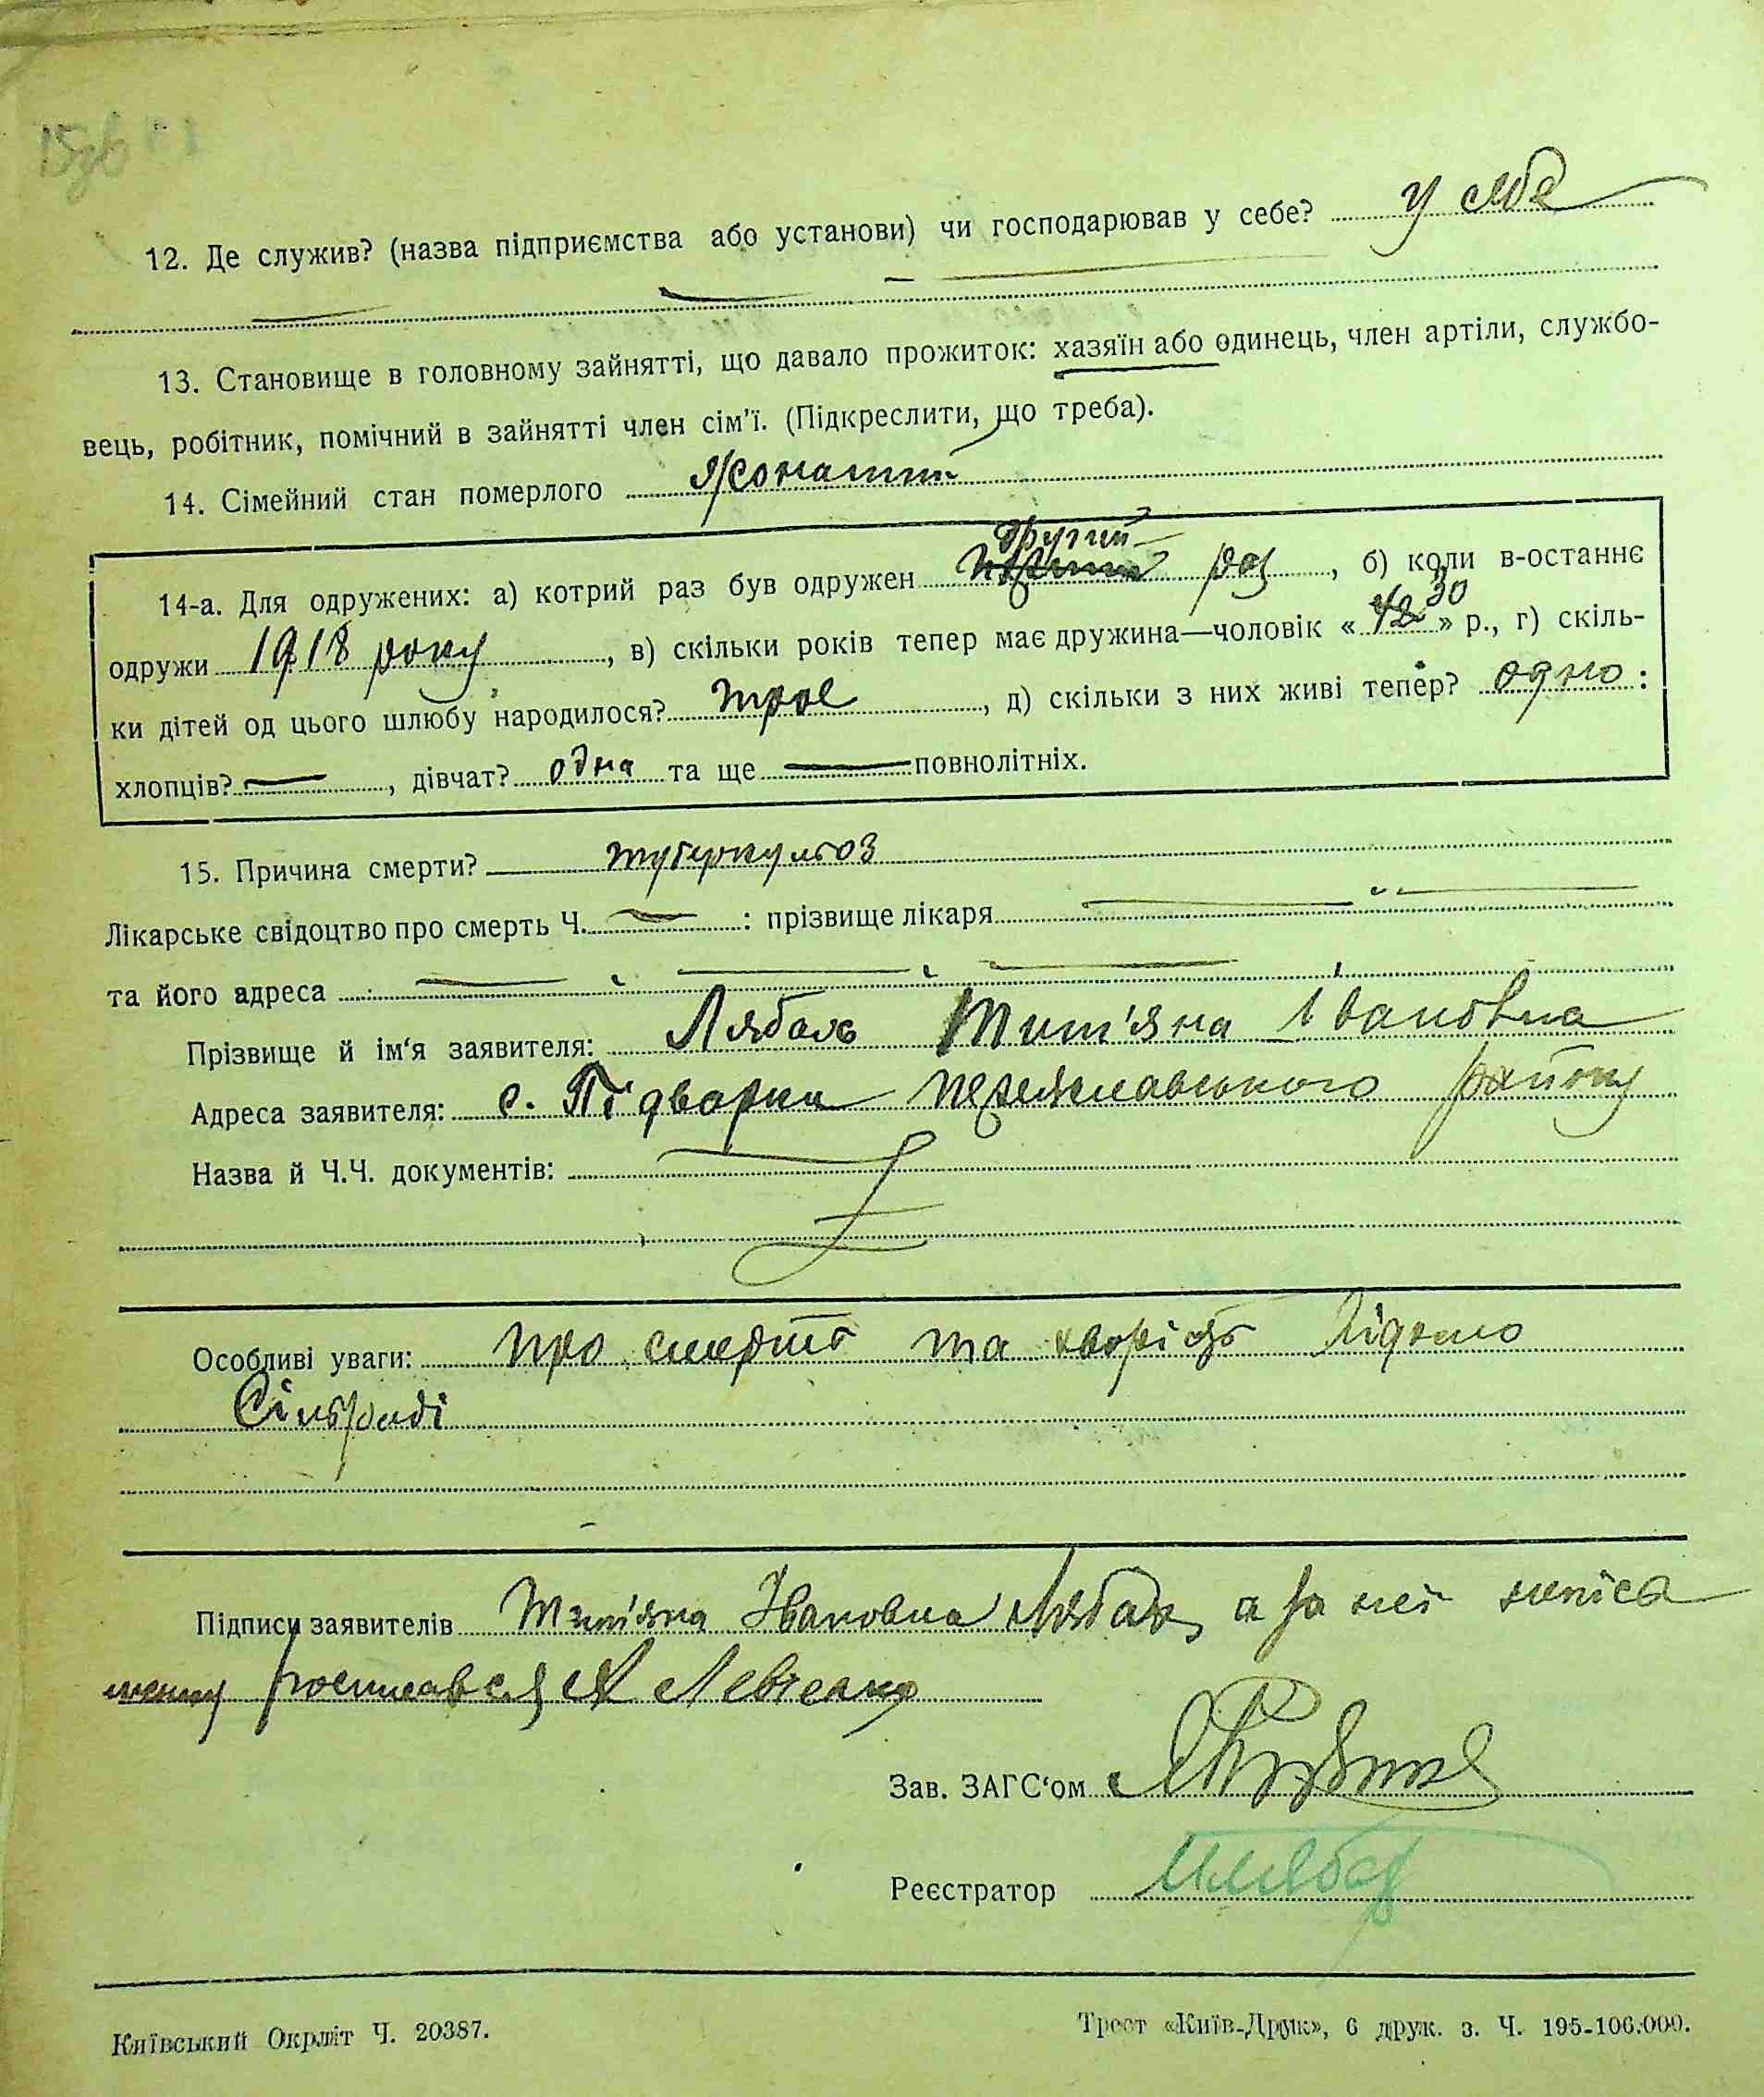 12. Де служив? (назва підприємства або установи) чи господарював у себе? у себе
13. Становище в головному зайнятті, що давало прожиток: хазяїн або одинець, член артіли, службо-
вець, робітник, помічний в зайнятті член сім'ї. (Підкреслити, що треба).
14. Сімейний стан померлого Жонатий
другий
14-а. Для одружених: а) котрий раз був одружен перший раз, б) коли в-останнє
30
одружи 1918 року, в) скільки років тепер має дружина—чоловік «42» р., г) скіль-
ки дітей од цього шлюбу народилося? троє, д) скільки з них живі тепер? одно:
хлопців? —, дівчат? одна та ще — повнолітніх.
15. Причина смерти? туберкульоз
Лікарське свідоцтво про смерть Ч. — : прізвище лікаря —
та його адреса —
Прізвище й ім'я заявителя: Лябах Тит'яна Івановна
Адреса заявителя: с. Підварки переяславського району
Назва й Ч.Ч. документів:
Особливі уваги: про смерть та хворість Відомо
Сільраді
Підписи заявителів Тит'яна Івановна Лябах, а за неї
росписався Левченко
Зав. ЗАГС'ом
Реєстратор
Київський Окрліт Ч. 20387.
Трест «Київ-Друк», 6 друк. з. Ч. 195-106.000.